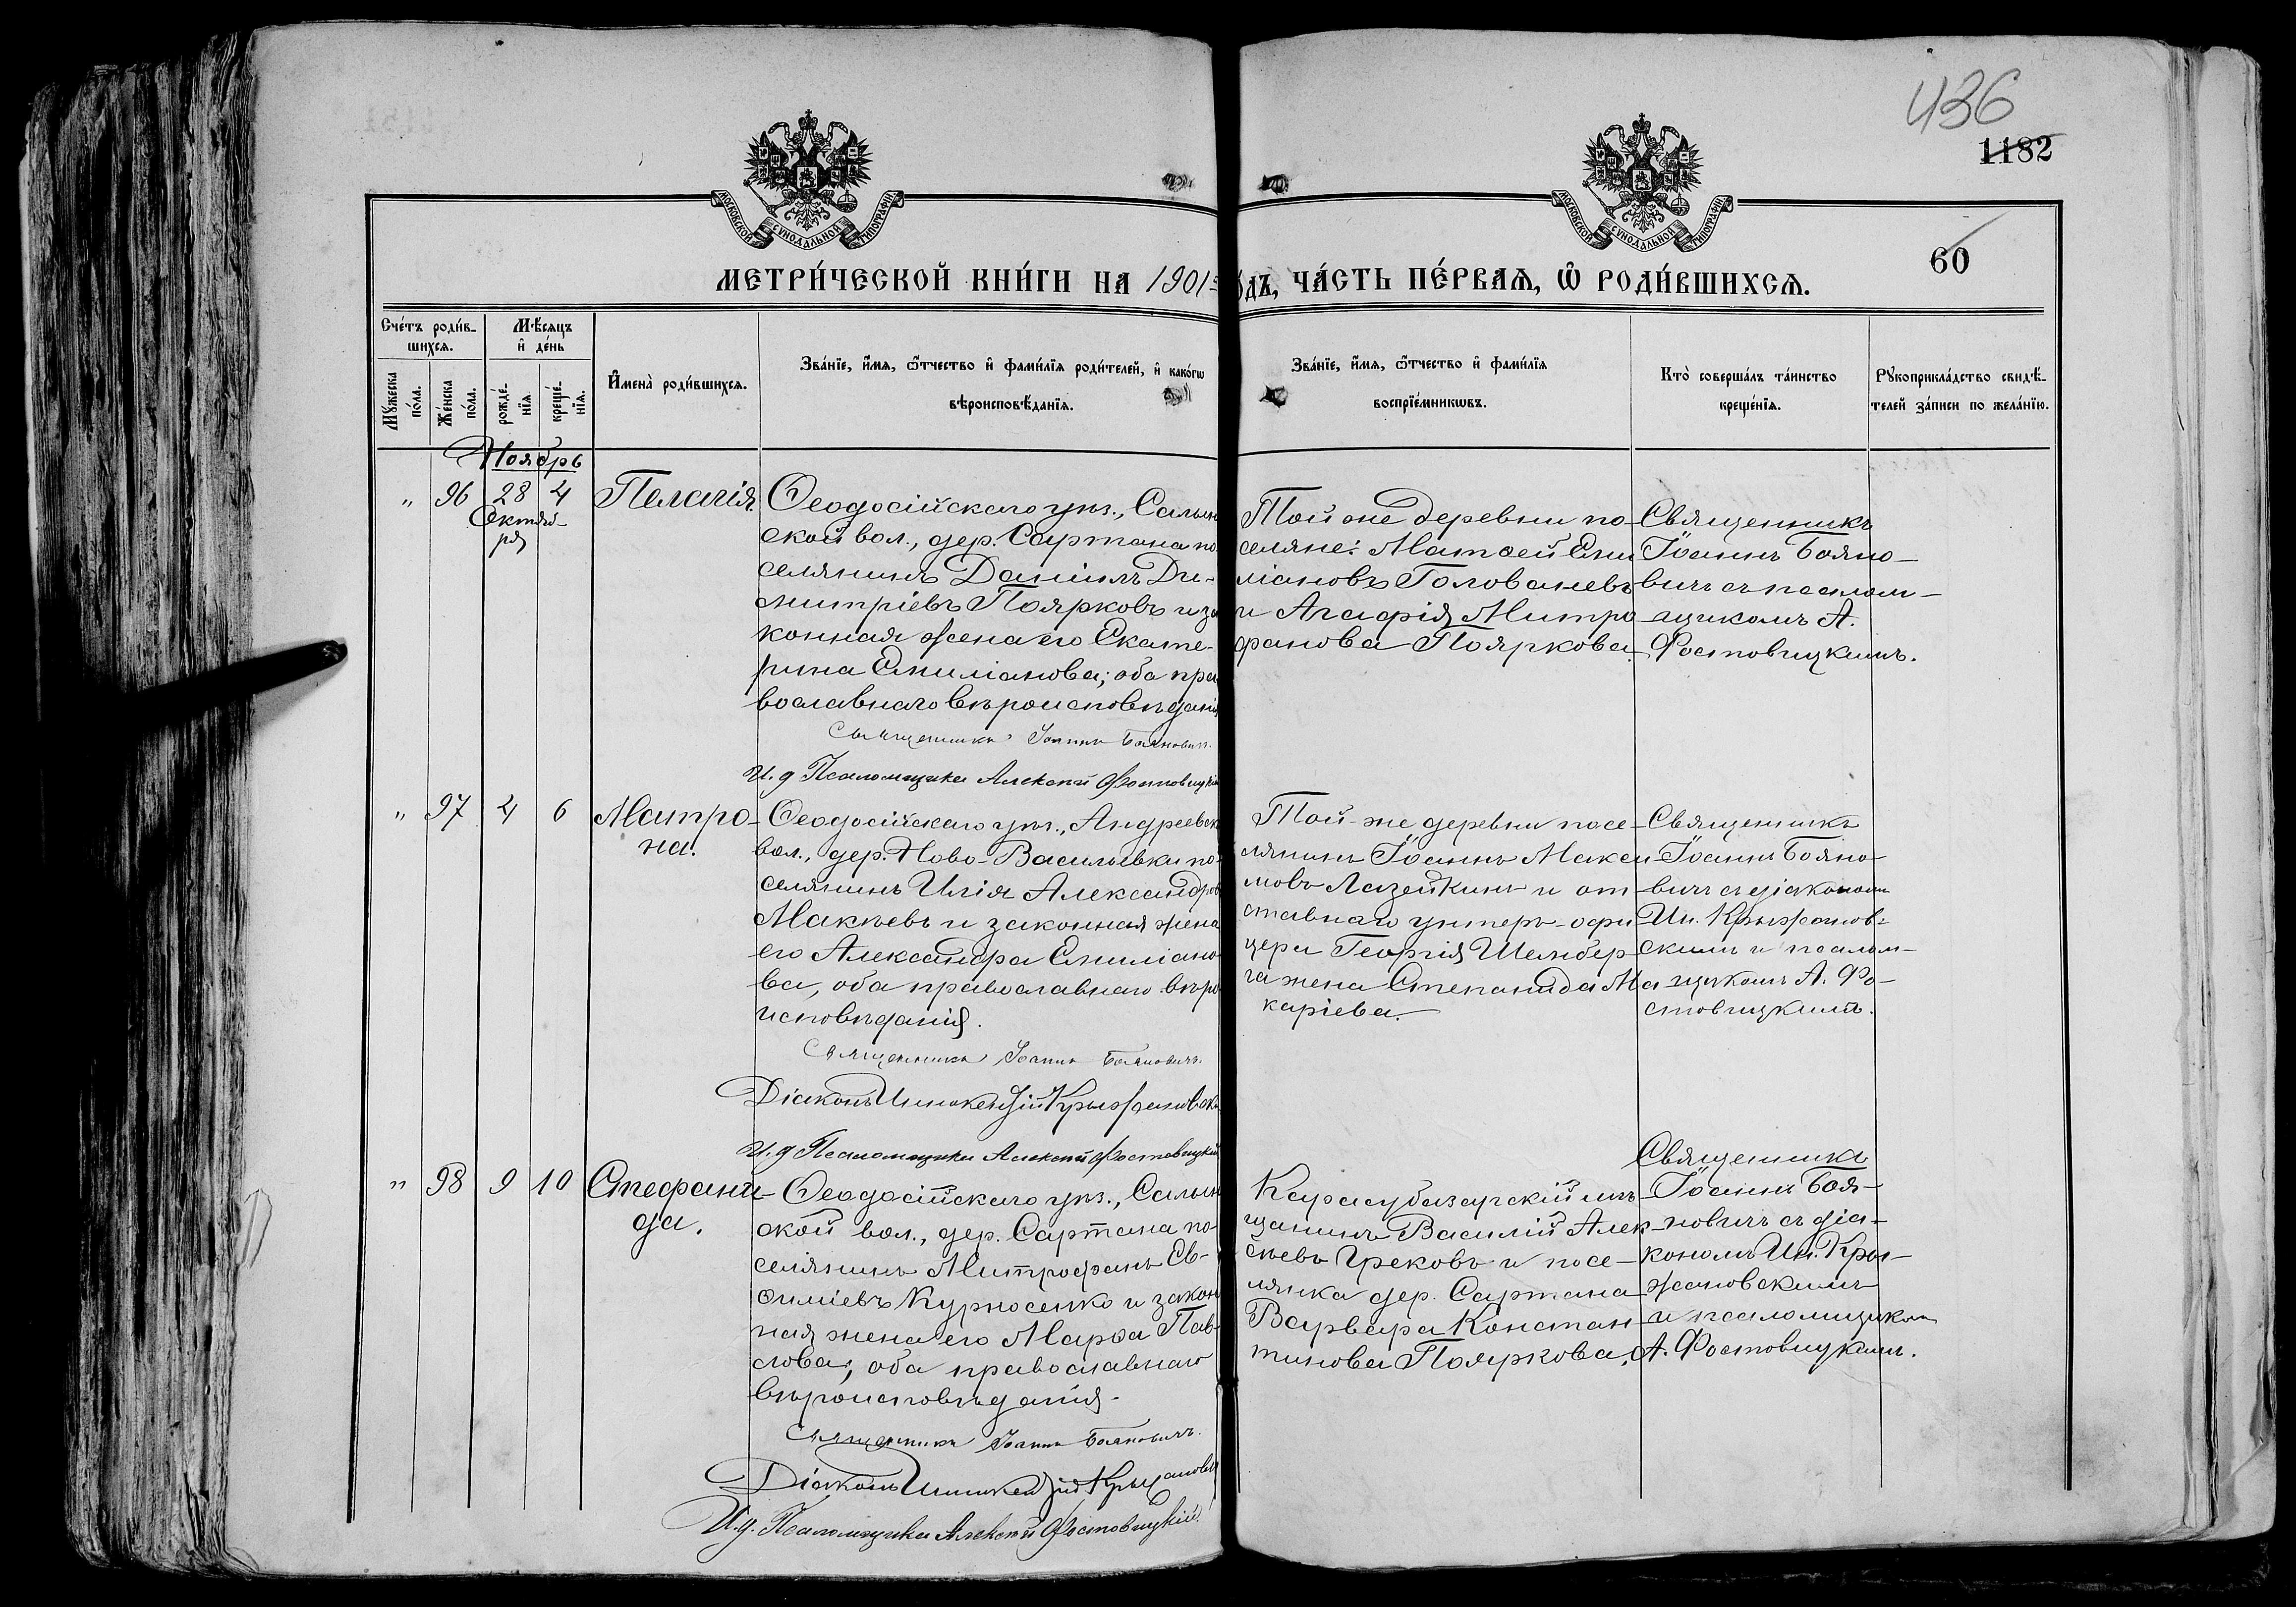 436
1182
МОСКОВСКОЙ СѴНОДАЛЬНОЙ ТИПОГРАФІИ
МОСКОВСКОЙ СѴНОДАЛЬНОЙ ТИПОГРАФІИ
60
МЕТРИ́ЧЕСКОЙ КНИ́ГИ НА 1901
ДЪ, ЧА́СТЬ ПЕ́РВАѦ, Ѿ РОДИ́ВШИХСѦ.
Сче́тъ роди́в-
шихсѧ.
Мѣ́сѧцъ
и҆ де́нь
Мꙋ́жеска по́ла.
Же́нска по́ла.
рожде́-нїѧ
креще́-нїѧ.
И҆мена̀ роди́вшихсѧ.
Зва́нїе, и҆́мѧ, ѻ҆́тчество и҆ фами́лїѧ роди́телей, и҆ како́гѡ
вѣроисповѣ́данїѧ.
Зва́нїе, и҆́мѧ, ѻ҆́тчество и҆ фами́лїѧ
воспрїе́мникѡвъ.
Кто̀ соверша́лъ та́инство
креще́нїѧ.
Рꙋкоприкла́дство свидѣ́-
телей за́писи по жела́нїю.
Ноябрь
" 96 28 4
Октяб-
ря
Пелагія.
Ѳеодосійскаго уѣз., Салын
ской вол., дер. Сартана по
селянинъ Даніилъ Ди-
митріевъ Поярковъ и за
конная жена его Екате-
рина Емиліанова; оба пра
вославнаго вѣроисповѣданія
Священникъ Іоаннъ Бояновичъ.
И. д Псаломщика Алексѣй Фостовицкій
Той же деревни по-
селяне: Матѳей Еми
ліановъ Голованевъ
и Агафія Митро
фанова Пояркова.
Священникъ
Іоаннъ Бояно-
вичъ съ псалом-
щикомъ А.
Фостовицкимъ.
" 97 4 6
Матро-
на.
Ѳеодосійскаго уѣз., Андреевск
вол., дер. Ново-Васильевки по-
селянинъ Илія Александров
Макѣевъ и законная жена
его Александра Емиліано
ва, оба православнаго вѣро
исповѣданія.
Священникъ Іоаннъ Бояновичъ.
Діаконъ Иннокентій Крыжановск
И. д Псаломщика Алексѣй Фостовицкій
Той-же деревни посе-
лянинъ Іоаннъ Макси
мовъ Лазейкинъ и от
ставнаго унтеръ-офи
цера Георгія Шельбер
га жена Степанида Ма
каріева.
Священникъ
Іоаннъ Бояно-
вичъ съ діакономъ
Ин. Крыжанов-
скимъ и псалом-
щикомъ А. Фо-
стовицкимъ.
" 98 9 10
Стефани-
да.
Ѳеодосійскаго уѣз., Салын
ской вол., дер. Сартана по-
селянинъ Митрофанъ Ев-
ѳиміевъ Курносенко и закон
ная жена его Марѳа Пав-
лова; оба православнаго
вѣроисповѣданія.
Священникъ Іоаннъ Бояновичъ.
Діаконъ Иннокентій Крыжановск
И. д. Псаломщика Алексѣй Фостовицкій.
Карасубазарскій мѣ-
щанинъ Василій Алек
сѣевъ Грековъ и посе-
лянка дер. Сартана
Варвара Констан-
тинова Пояркова.
Священникъ
Іоаннъ Боя-
новичъ съ діа-
кономъ Ин. Кры-
жановскимъ
и псаломщиком
А. Фостовицкимъ.